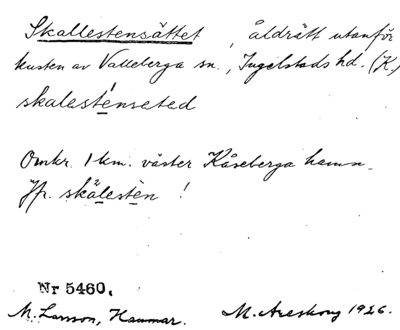 Skallestensättet, åldrätt utanför
kusten av Valleberga sn., Ingelstads hd. (K)
skalesténseted
Omkr. 1 km. väster Kåseberga hamn.
Jfr. skälestèn !
Nr 5460.
M. Larsson, Hammar. M. Areskog 1926.